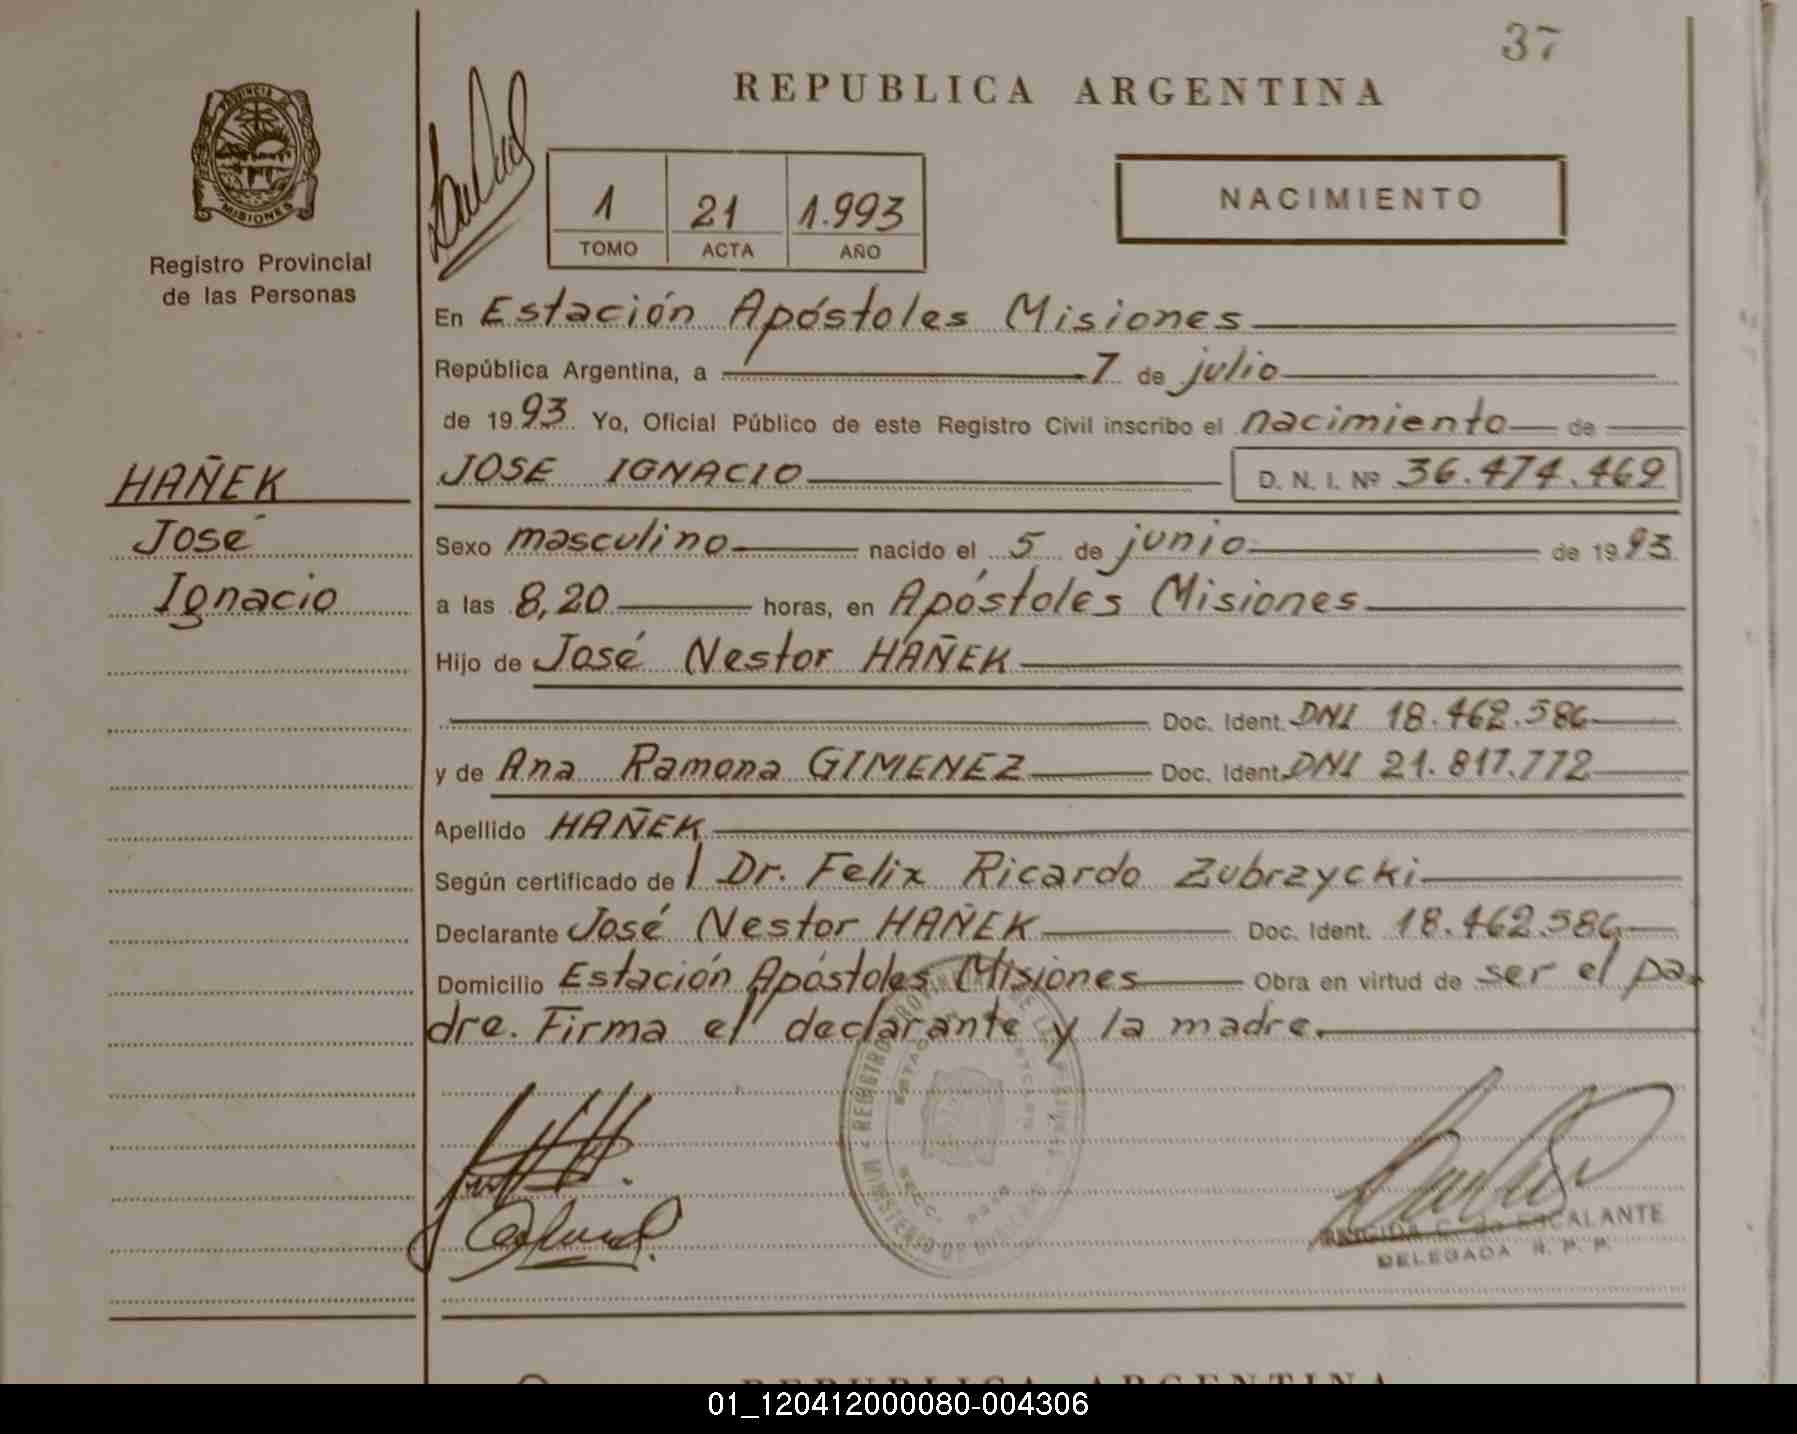 37
REPUBLICA ARGENTINA
PROVINCIA DE
MISIONES
Registro Provincial
de las Personas
1 21 1.993
TOMO ACTA AÑO
NACIMIENTO
En Estación Apóstoles Misiones
República Argentina, a 7 de julio
de 1993 Yo, Oficial Público de este Registro Civil inscribo el nacimiento de
HAÑEK
JOSE IGNACIO D. N. I. Nº 36.474.469
José
Sexo masculino nacido el 5 de junio de 1993
Ignacio
a las 8,20 horas, en Apóstoles Misiones
Hijo de José Nestor HAÑEK
Doc. Ident. DNI 18.462.586
y de Ana Ramona GIMENEZ Doc. Ident. DNI 21.817.772
Apellido HAÑEK
Según certificado de l Dr. Felix Ricardo Zubrzycki
Declarante José Nestor HAÑEK Doc. Ident. 18.462.586
Domicilio Estación Apóstoles Misiones Obra en virtud de ser el pa-
dre. Firma el declarante y la madre.
MINISTERIO DE REGISTRO DE LAS
C. de ESCALANTE
DELEGADA R. P. P.
REPUBLICA ARGENTINA
01_120412000080-004306